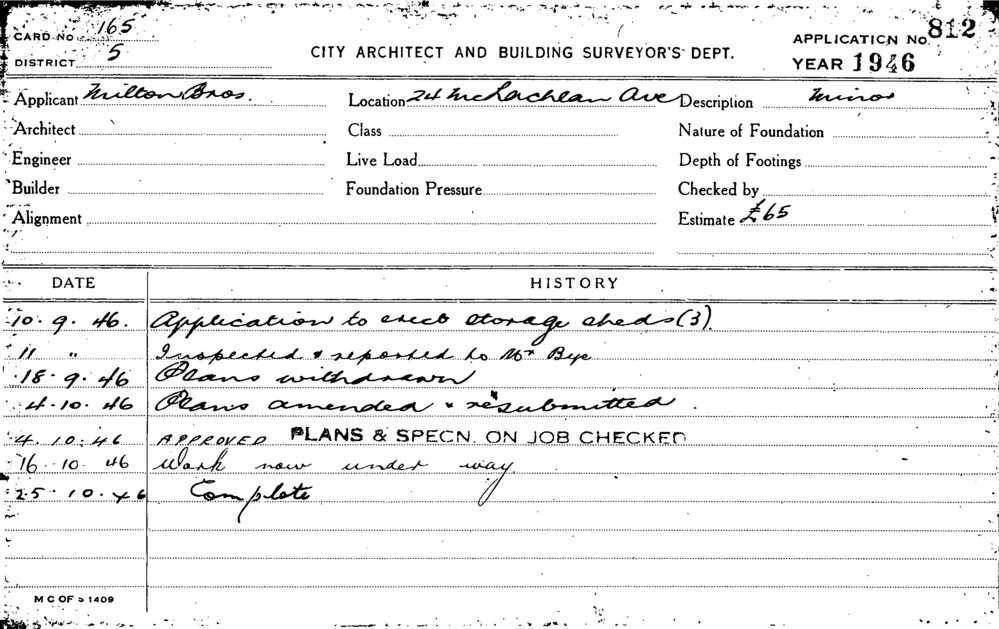 CARD No 165
DISTRICT 5
CITY ARCHITECT AND BUILDING SURVEYOR'S DEPT.
APPLICATION No. 812
YEAR 1946
Applicant Milton Bros. Location 24 McLachlan Ave Description Minor
Architect Class Nature of Foundation
Engineer Live Load Depth of Footings
Builder Foundation Pressure Checked by
Alignment Estimate £65
DATE HISTORY
10. 9. 46. Application to erect storage sheds (3).
11 " Inspected & reported to Mr Bye
18. 9. 46 Plans withdrawn
4. 10. 46 Plans amended & resubmitted.
4. 10. 46 APPROVED PLANS & SPECN. ON JOB CHECKED
16. 10. 46 Work now under way
25. 10. 46 Complete
M C OF S 1409